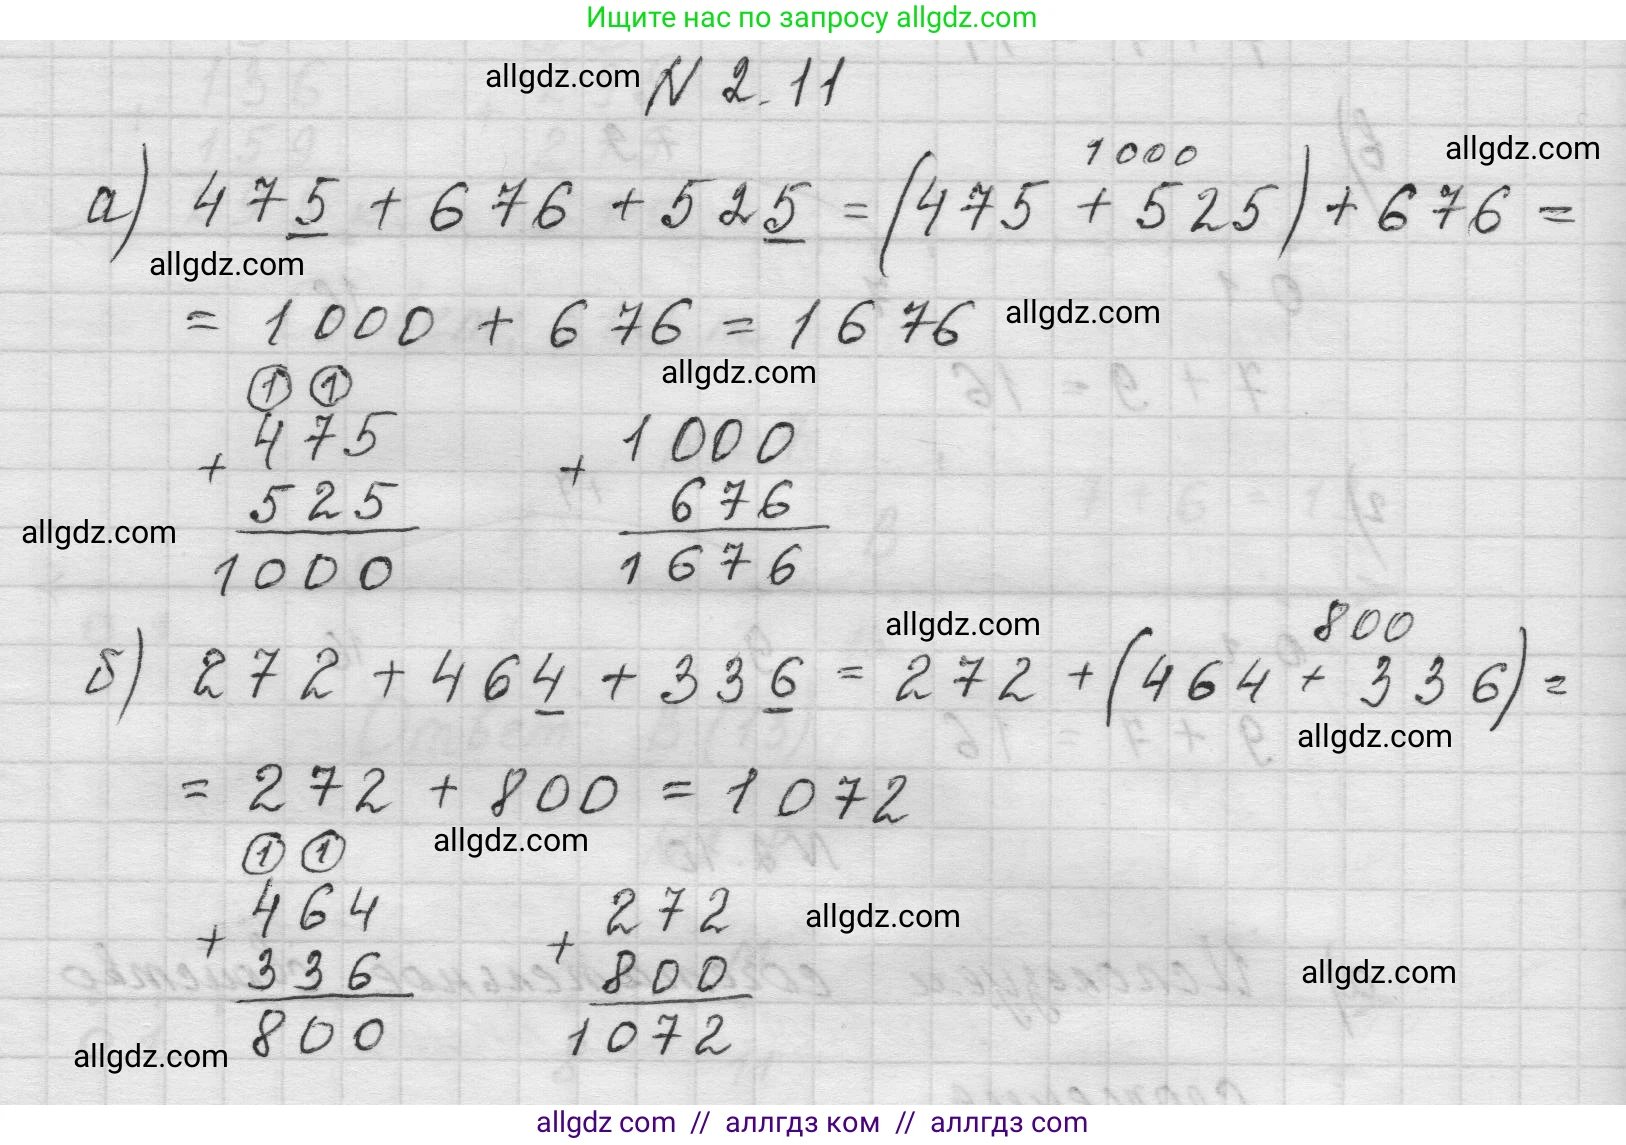 Ищите нас по запросу allgdz.com
allgdz.com N 2.11
1000 allgdz.com
а) 475 + 676 + 525 = (475 + 525) + 676 =
allgdz.com
= 1000 + 676 = 1676 allgdz.com
allgdz.com
1 1
475
+
525
1000
1000
+
676
1676
allgdz.com
allgdz.com 800
б) 272 + 464 + 336 = 272 + (464 + 336) =
allgdz.com
= 272 + 800 = 1072
allgdz.com
1 1
464
+
336
800
272
+
800
1072
allgdz.com
allgdz.com
allgdz.com
allgdz com // аллгдз ком // аллгдз com